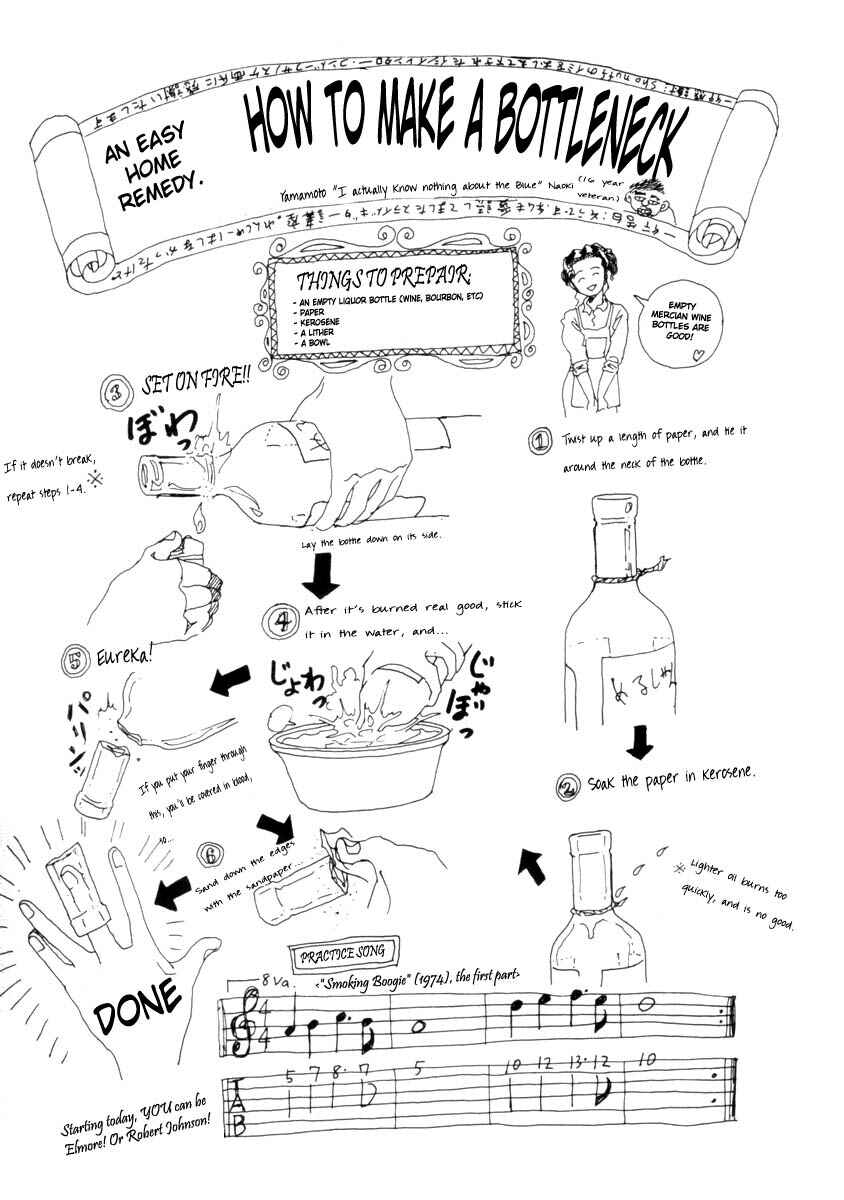 HOW TO MAKE A BOTTLENECK
AN EASY
HOME
REMEDY.
Yamamoto "I actually know nothing about the Blue" Naoki (16 year
veteran)
THINGS TO PREPAIR:
- AN EMPTY LIQUOR BOTTLE (WINE, BOURBON, ETC)
- PAPER
- KEROSENE
- A LITHER
- A BOWL
EMPTY
MERCIAN WINE
BOTTLES ARE
GOOD!
1 Twist up a length of paper, and tie it
around the neck of the bottle.
めるしゃん
2 Soak the paper in kerosene.
※ Lighter oil burns too
quickly, and is no good.
3 SET ON FIRE!!
ぼわっ
If it doesn't break,
repeat steps 1-4. ※
Lay the bottle down on its side.
4 After it's burned real good, stick
it in the water, and...
じょわっ
じゃぼっ
5 Eureka!
パリン
If you put your finger through
this, you'll be covered in blood,
so...
6 Sand down the edges
with the sandpaper...
DONE
PRACTICE SONG
8va.
<"Smoking Boogie" (1974), the first part>
4
4
5 7 8. 7 5 10 12 13. 12 10
T
A
B
Starting today, YOU can be
Elmore! Or Robert Johnson!